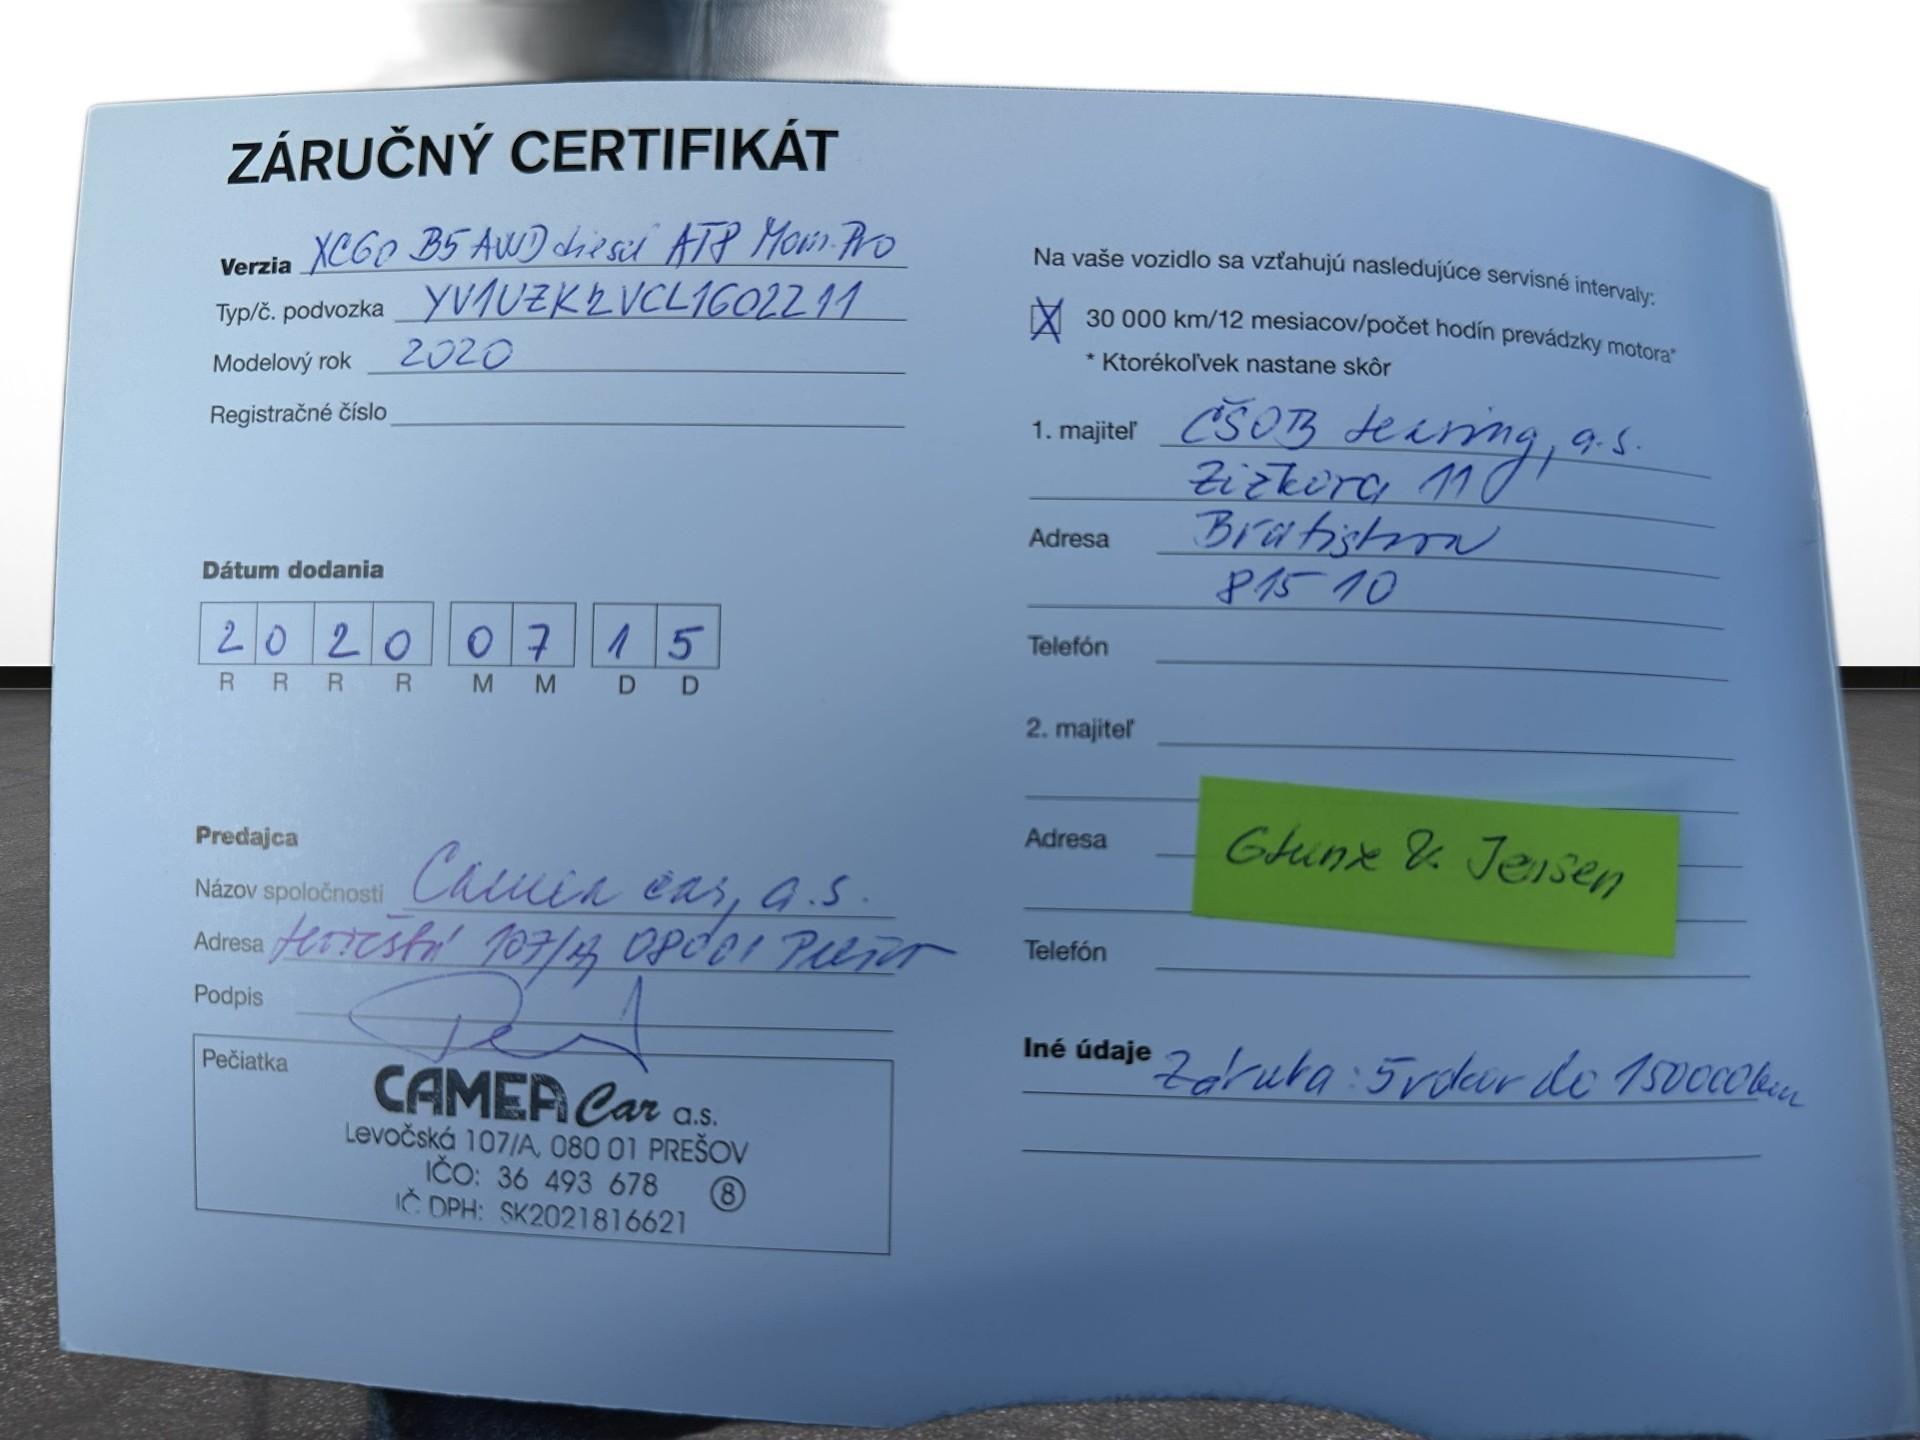 ZÁRUČNÝ CERTIFIKÁT
Verzia XC60 B5 AWD diesel AT8 Mom. Pro
Typ/č. podvozka YV1UZK2VCL1602211
Modelový rok 2020
Registračné číslo
Dátum dodania
2 0 2 0 0 7 1 5
R R R R M M D D
Predajca
Názov spoločnosti Camea car, a.s.
Adresa 107/A 08001 Prešov
Podpis
Pečiatka
CAMEA Car a.s.
Levočská 107/A, 080 01 PREŠOV
IČO: 36 493 678 8
IČ DPH: SK2021816621
Na vaše vozidlo sa vzťahujú nasledujúce servisné intervaly:
X 30 000 km/12 mesiacov/počet hodín prevádzky motora*
* Ktorékoľvek nastane skôr
1. majiteľ ČSOB Leasing, a.s.
Žižkova 11
Adresa Bratislava
815 10
Telefón
2. majiteľ
Adresa
& Jensen
Telefón
Iné údaje Záruka: 5 rokov do 150000km